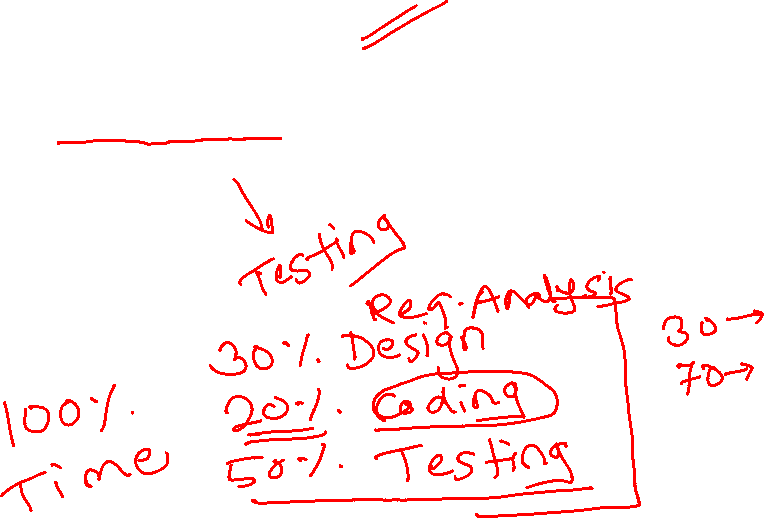 Testing
Req. Analysis
30%. Design
20%. Coding
50%. Testing
100%.
Time
30→
70→